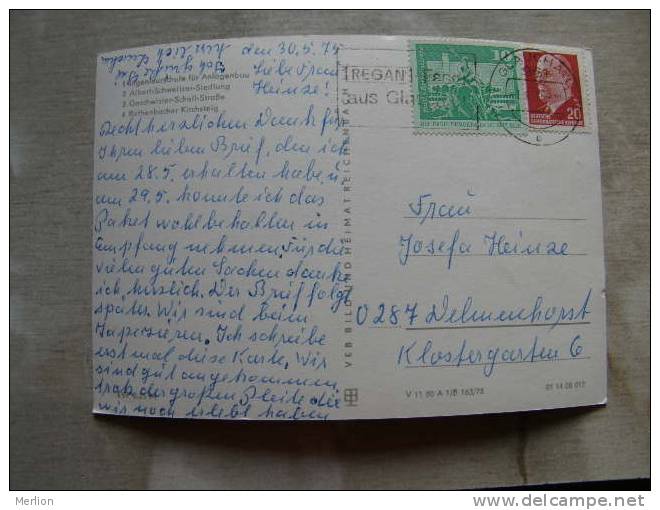 den 30.5.75
Liebe Frau
Heinze!
1 Ingenieurschule für Anlagenbau
2 Albert-Schweitzer-Siedlung
3 Geschwister-Scholl-Straße
4 Rothenbacher Kirchsteig
Recht herzlichen Dank für
Ihren lieben Brief, den ich
am 28.5. erhalten habe, u.
am 29.5. konnte ich das
Paket wohlbehalten in
Empfang nehmen. Für die
vielen guten Sachen danke
ich herzlich. Der Brief folgt
später. Wir sind beim
Tapezieren. Ich schreibe
erst mal diese Karte. Wir
sind gut angekommen
trotz der großen Pleite die
wir noch erlebt haben
VEB BILD UND HEIMAT REICHENBACH
REGAN
aus Gla
10
20
DEUTSCHE
DEMOKRATISCHE REPUBLIK
Frau
Josefa Heinze
0287 Delmenhorst
Klostergarten 6
V 11 50 A 1/B 163/73
01 14 08 017
Merlion
www.delcampe.net